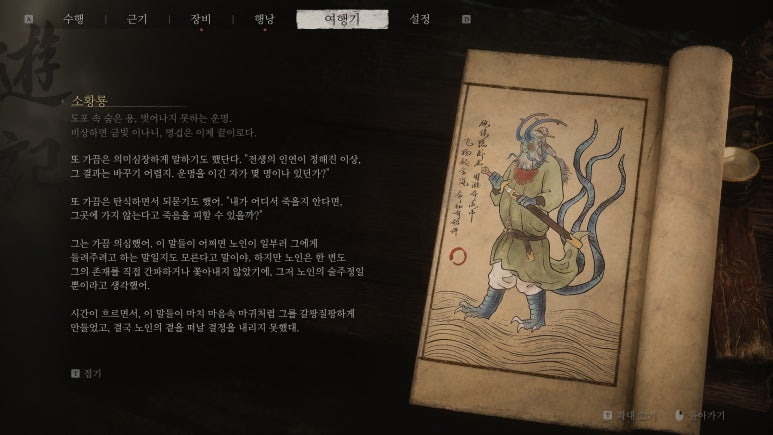 A 수행 근기 장비 행낭 여행기 설정 D
소황룡
도포 속 숨은 용, 벗어나지 못하는 운명.
비상하면 금빛 이나니, 명검은 이제 끝이로다.
또 가끔은 의미심장하게 말하기도 했단다. "전생의 인연이 정해진 이상,
그 결과는 바꾸기 어렵지. 운명을 이긴 자가 몇 명이나 있던가?"
또 가끔은 탄식하면서 되묻기도 했어. "내가 어디서 죽을지 안다면,
그곳에 가지 않는다고 죽음을 피할 수 있을까?"
그는 가끔 의심했어. 이 말들이 어쩌면 노인이 일부러 그에게
들려주려고 하는 말일지도 모른다고 말이야. 하지만 노인은 한 번도
그의 존재를 직접 간파하거나 쫓아내지 않았기에, 그저 노인의 술주정일
뿐이라고 생각했어.
시간이 흐르면서, 이 말들이 마치 마음속 마귀처럼 그를 갈팡질팡하게
만들었고, 결국 노인의 곁을 떠날 결정을 내리지 못했대.
T 접기
Y 확대 보기 돌아가기